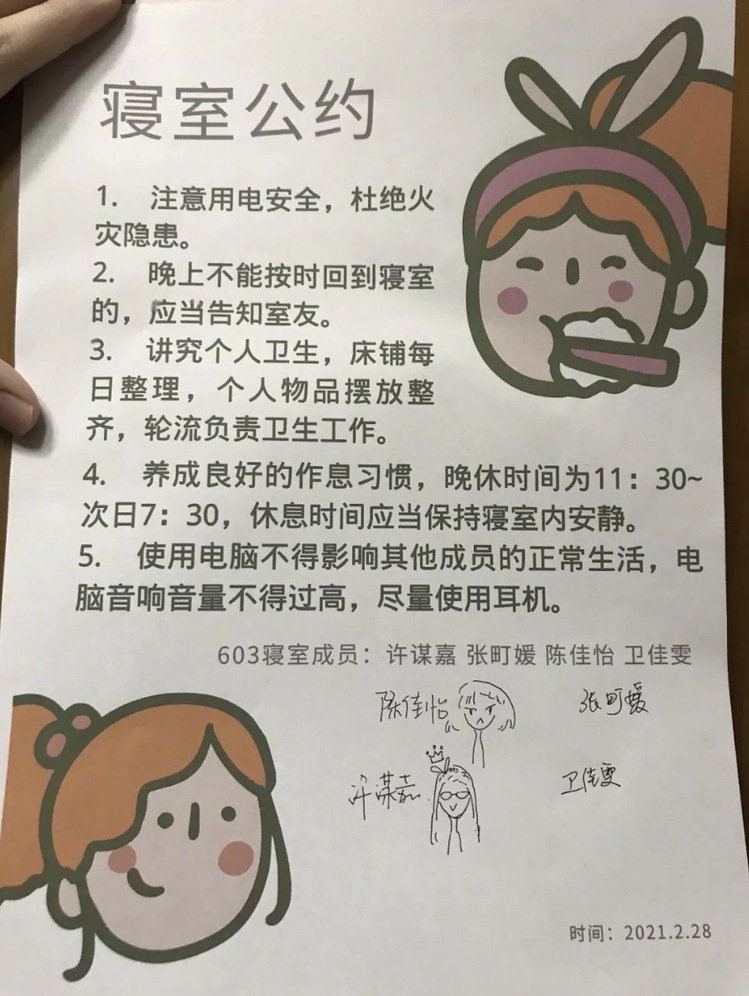 寝室公约
1. 注意用电安全，杜绝火
灾隐患。
2. 晚上不能按时回到寝室
的，应当告知室友。
3. 讲究个人卫生，床铺每
日整理，个人物品摆放整
齐，轮流负责卫生工作。
4. 养成良好的作息习惯，晚休时间为11：30~
次日7：30，休息时间应当保持寝室内安静。
5. 使用电脑不得影响其他成员的正常生活，电
脑音响音量不得过高，尽量使用耳机。
603寝室成员：许谋嘉 张町媛 陈佳怡 卫佳雯
陈佳怡 张町媛
许谋嘉 卫佳雯
时间：2021.2.28